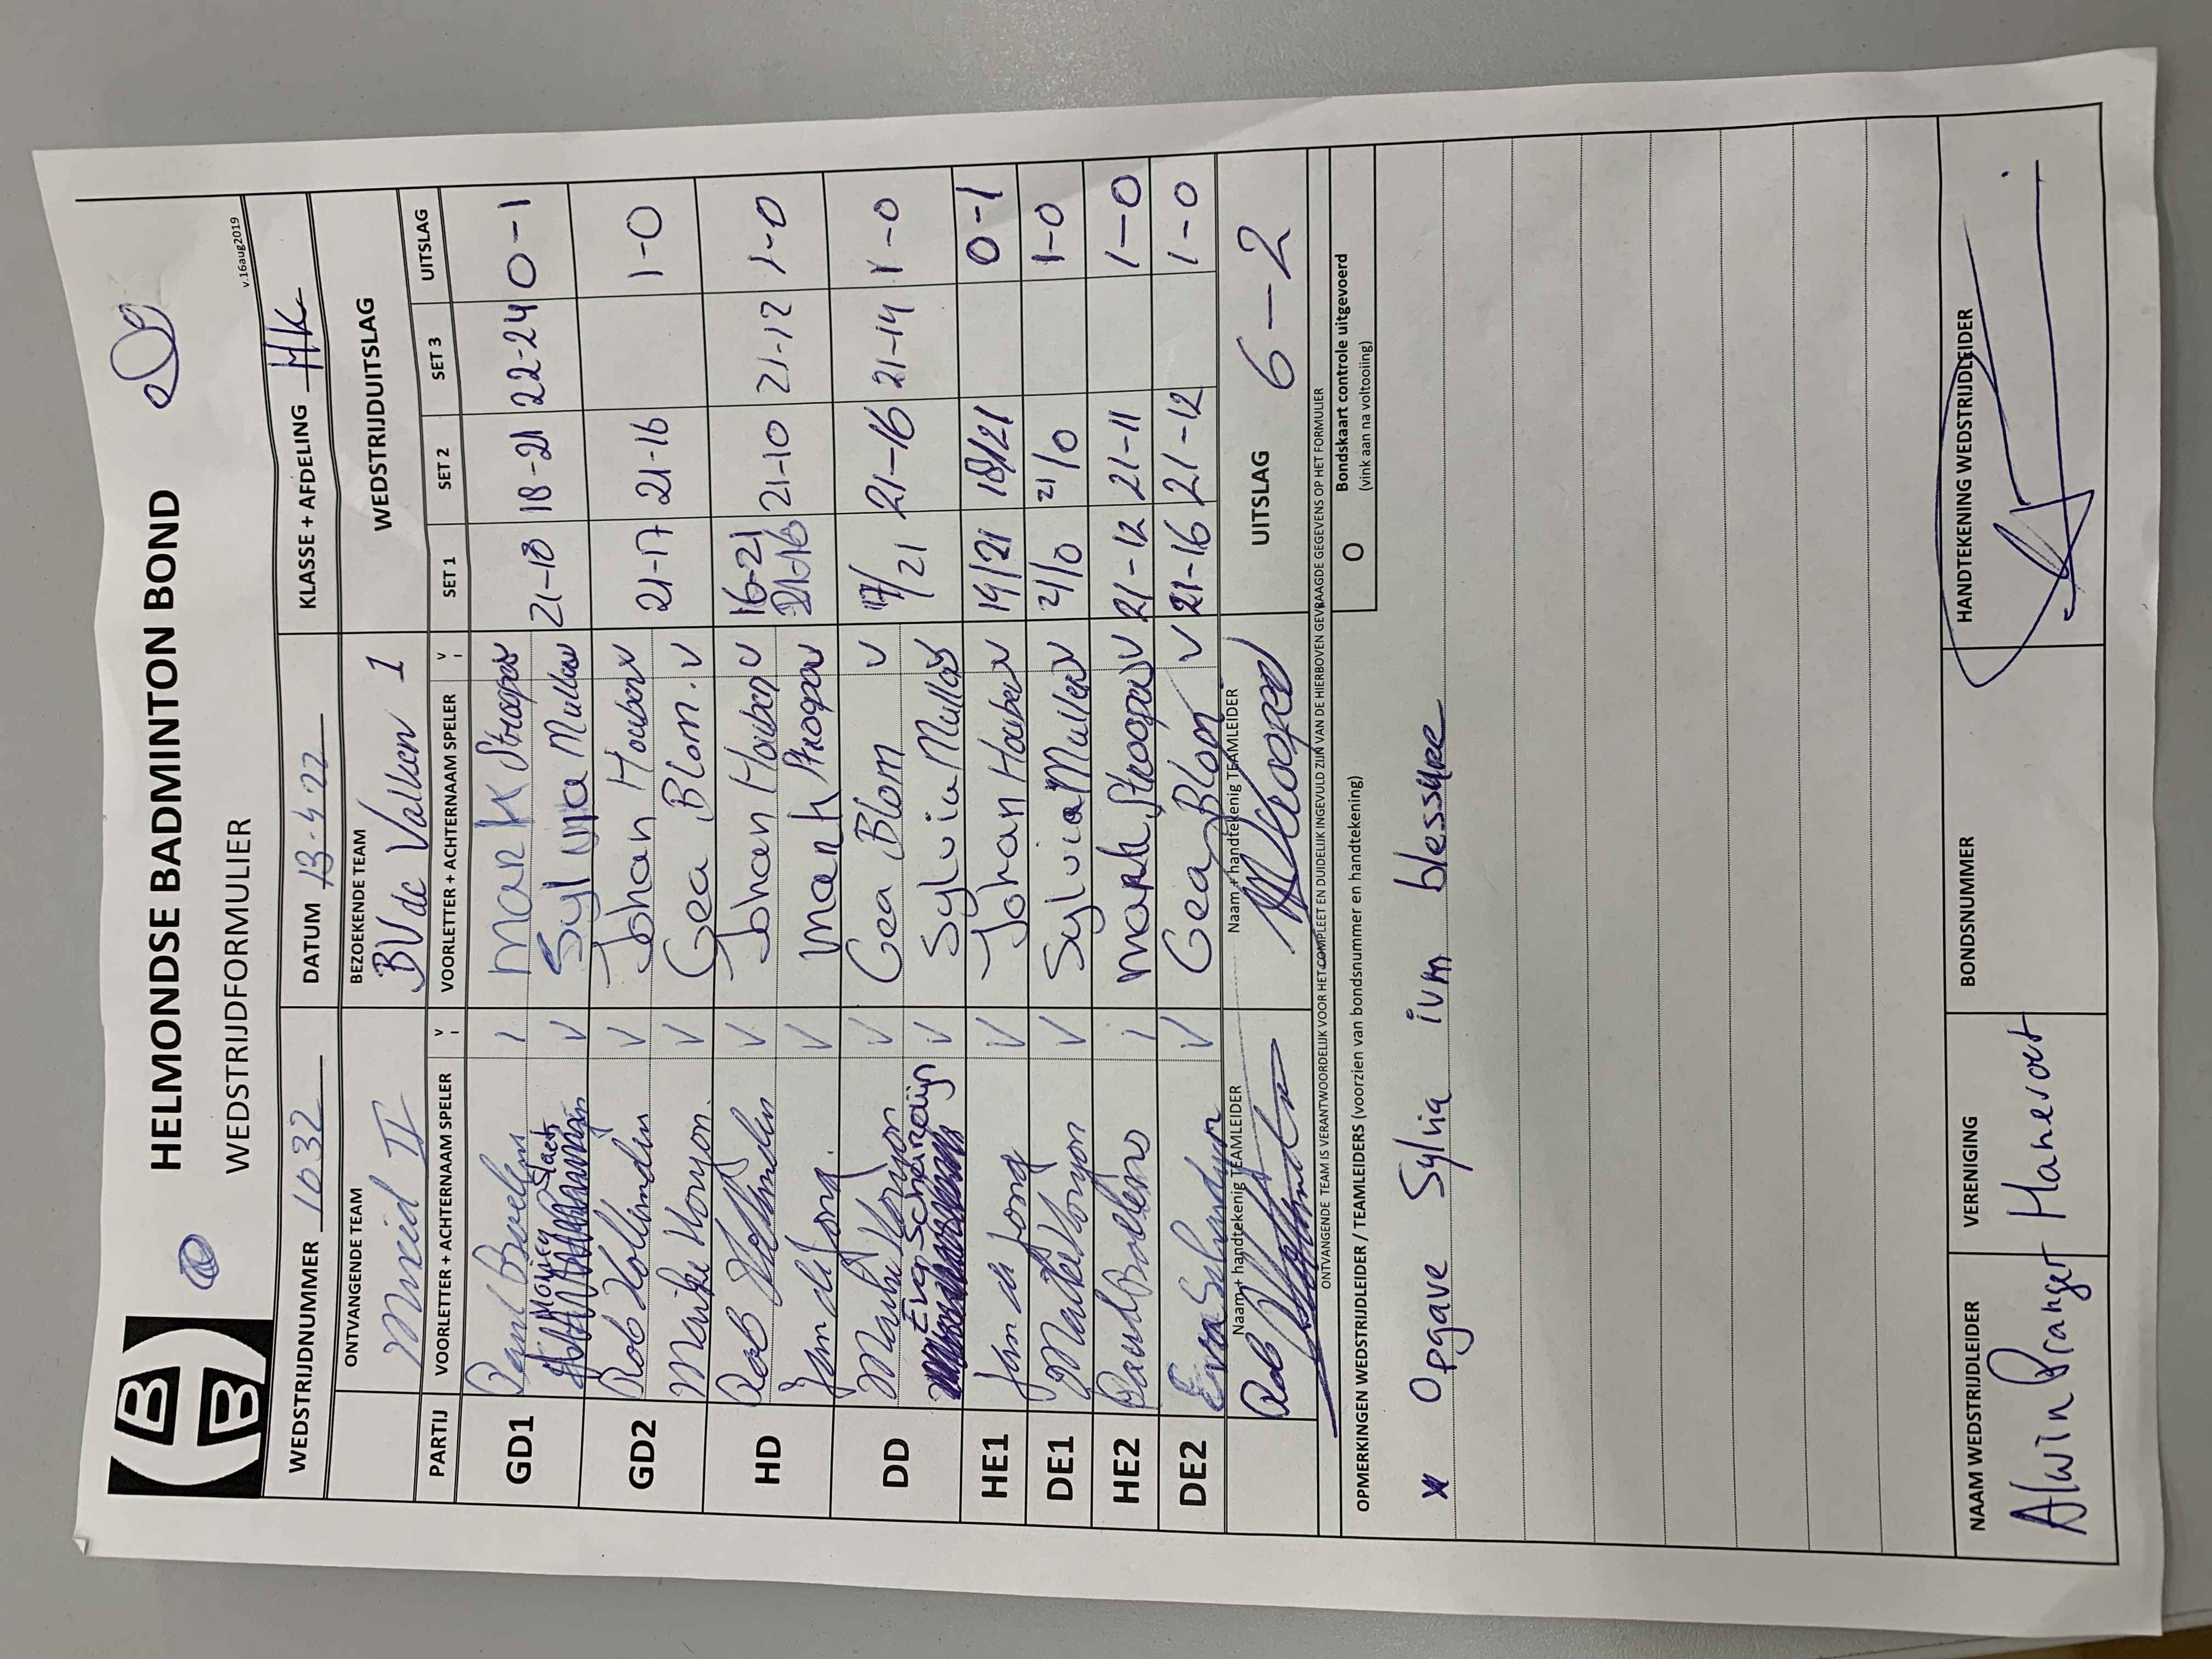 HELMONDSE BADMINTON BOND
WEDSTRIJDFORMULIER
v.16aug2019
WEDSTRIJDNUMMER 1032 DATUM 13-4-22 KLASSE + AFDELING HK
ONTVANGENDE TEAM BEZOEKENDE TEAM WEDSTRIJDUITSLAG
Mixed II BV de Valken 1
PARTIJ VOORLETTER + ACHTERNAAM SPELER V VOORLETTER + ACHTERNAAM SPELER V SET 1 SET 2 SET 3 UITSLAG
GD1 Paul V Mark Stroopers V 21-18 18-21 22-24 0-1
V Sylvia Mullers V
GD2 Rob V Johan Houben V 21-17 21-16 1-0
V Gea Blom. V
HD Rob V Johan Houben V 16-21 21-10 21-12 1-0
Jan de Jong. V Mark Stroopers V
DD V Gea Blom V 17/21 21-16 21-14 1-0
Eva Scheindijn V Sylvia Mullers V
HE1 Jan de Jong V Johan Houben V 14/21 18/21 0-1
DE1 V Sylvia Mullers V 21/0 21/0 1-0
HE2 Paul V Mark Stroopers V 21-12 21-11 1-0
DE2 Eva V Gea Blom V 21-16 21-12 1-0
Naam + handtekenig TEAMLEIDER Naam + handtekenig TEAMLEIDER UITSLAG 6-2
Rob
ONTVANGENDE TEAM IS VERANTWOORDELIJK VOOR HET COMPLEET EN DUIDELIJK INGEVULD ZIJN VAN DE HIERBOVEN GEVRAAGDE GEGEVENS OP HET FORMULIER
OPMERKINGEN WEDSTRIJDLEIDER / TEAMLEIDERS (voorzien van bondsnummer en handtekening) O Bondskaart controle uitgevoerd
(vink aan na voltooiing)
* Opgave Sylvia ivm blessure
NAAM WEDSTRIJDLEIDER VERENIGING BONDSNUMMER HANDTEKENING WEDSTRIJDLEIDER
Alwin Pranger Hanevoet